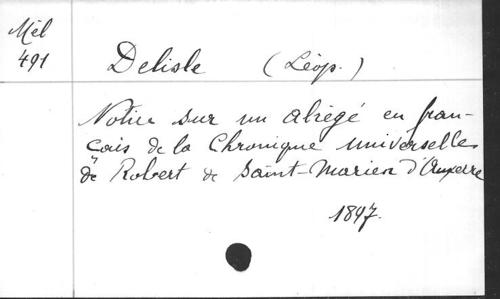 Mél
491
Delisle (Léop.)
Notice sur un abrégé en fran-
çais de la Chronique universelle
de Robert de Saint-Marien d'Auxerre
1897.